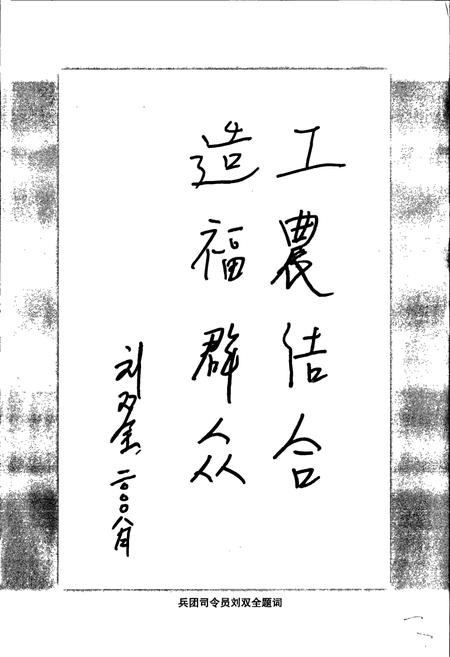 工農结合
造福群众
刘双全
二〇〇〇八月
兵团司令员刘双全题词